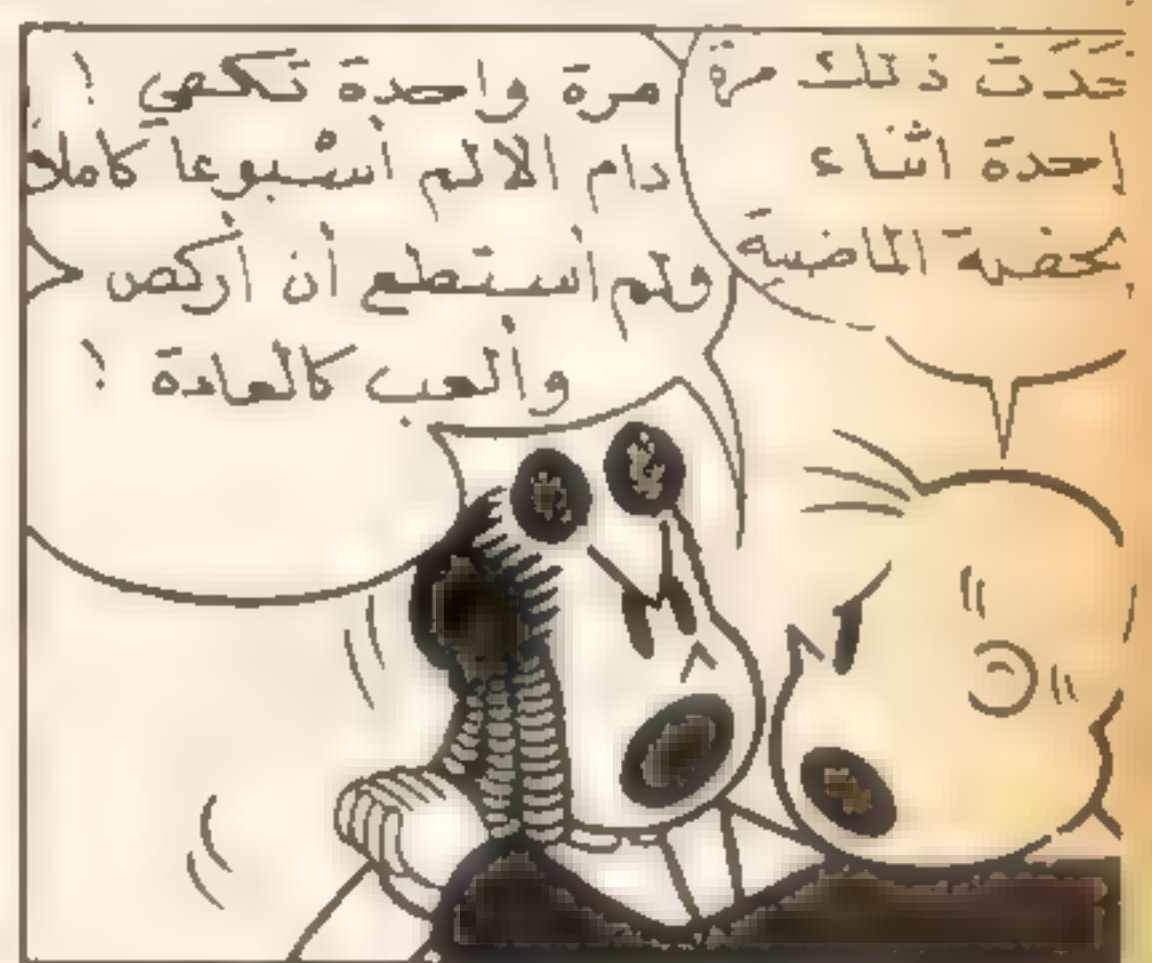 حَدَثَ ذلك مرة
احدة اثناء
الماضية
مرة واحدة تكفي !
دام الالم أسْبوعاً كاملاً
ولم أستطع أن أركض
وألعب كالعادة !